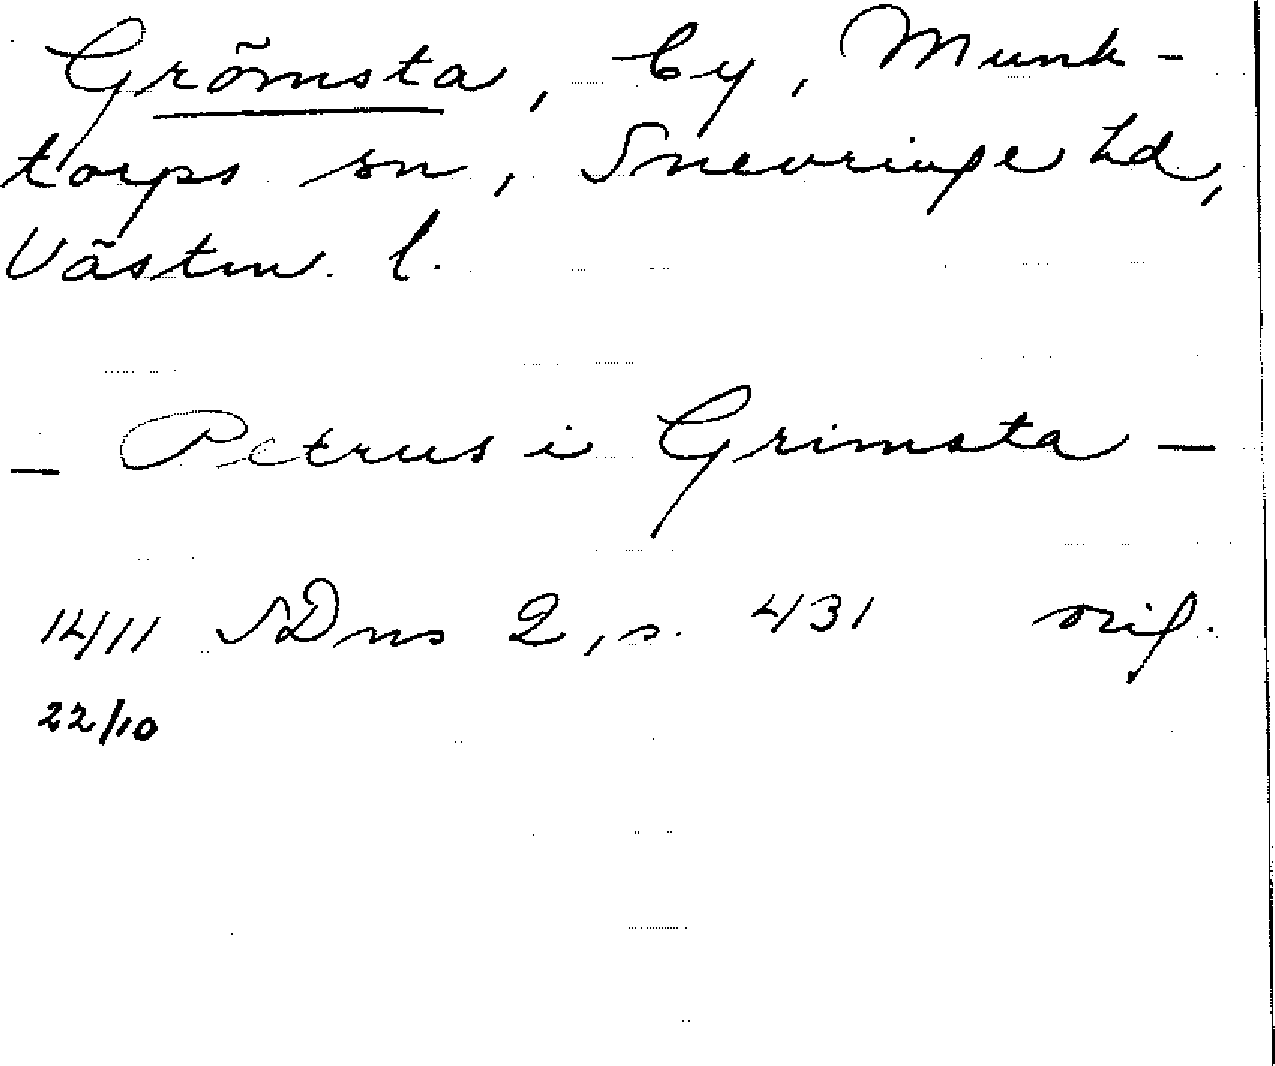 Grömsta, by, Munk-
torps sn, Snevringe hd,
Västm. l.
– Petrus i Grimsta –
1411 SDns 2, s. 431 orig.
22/10